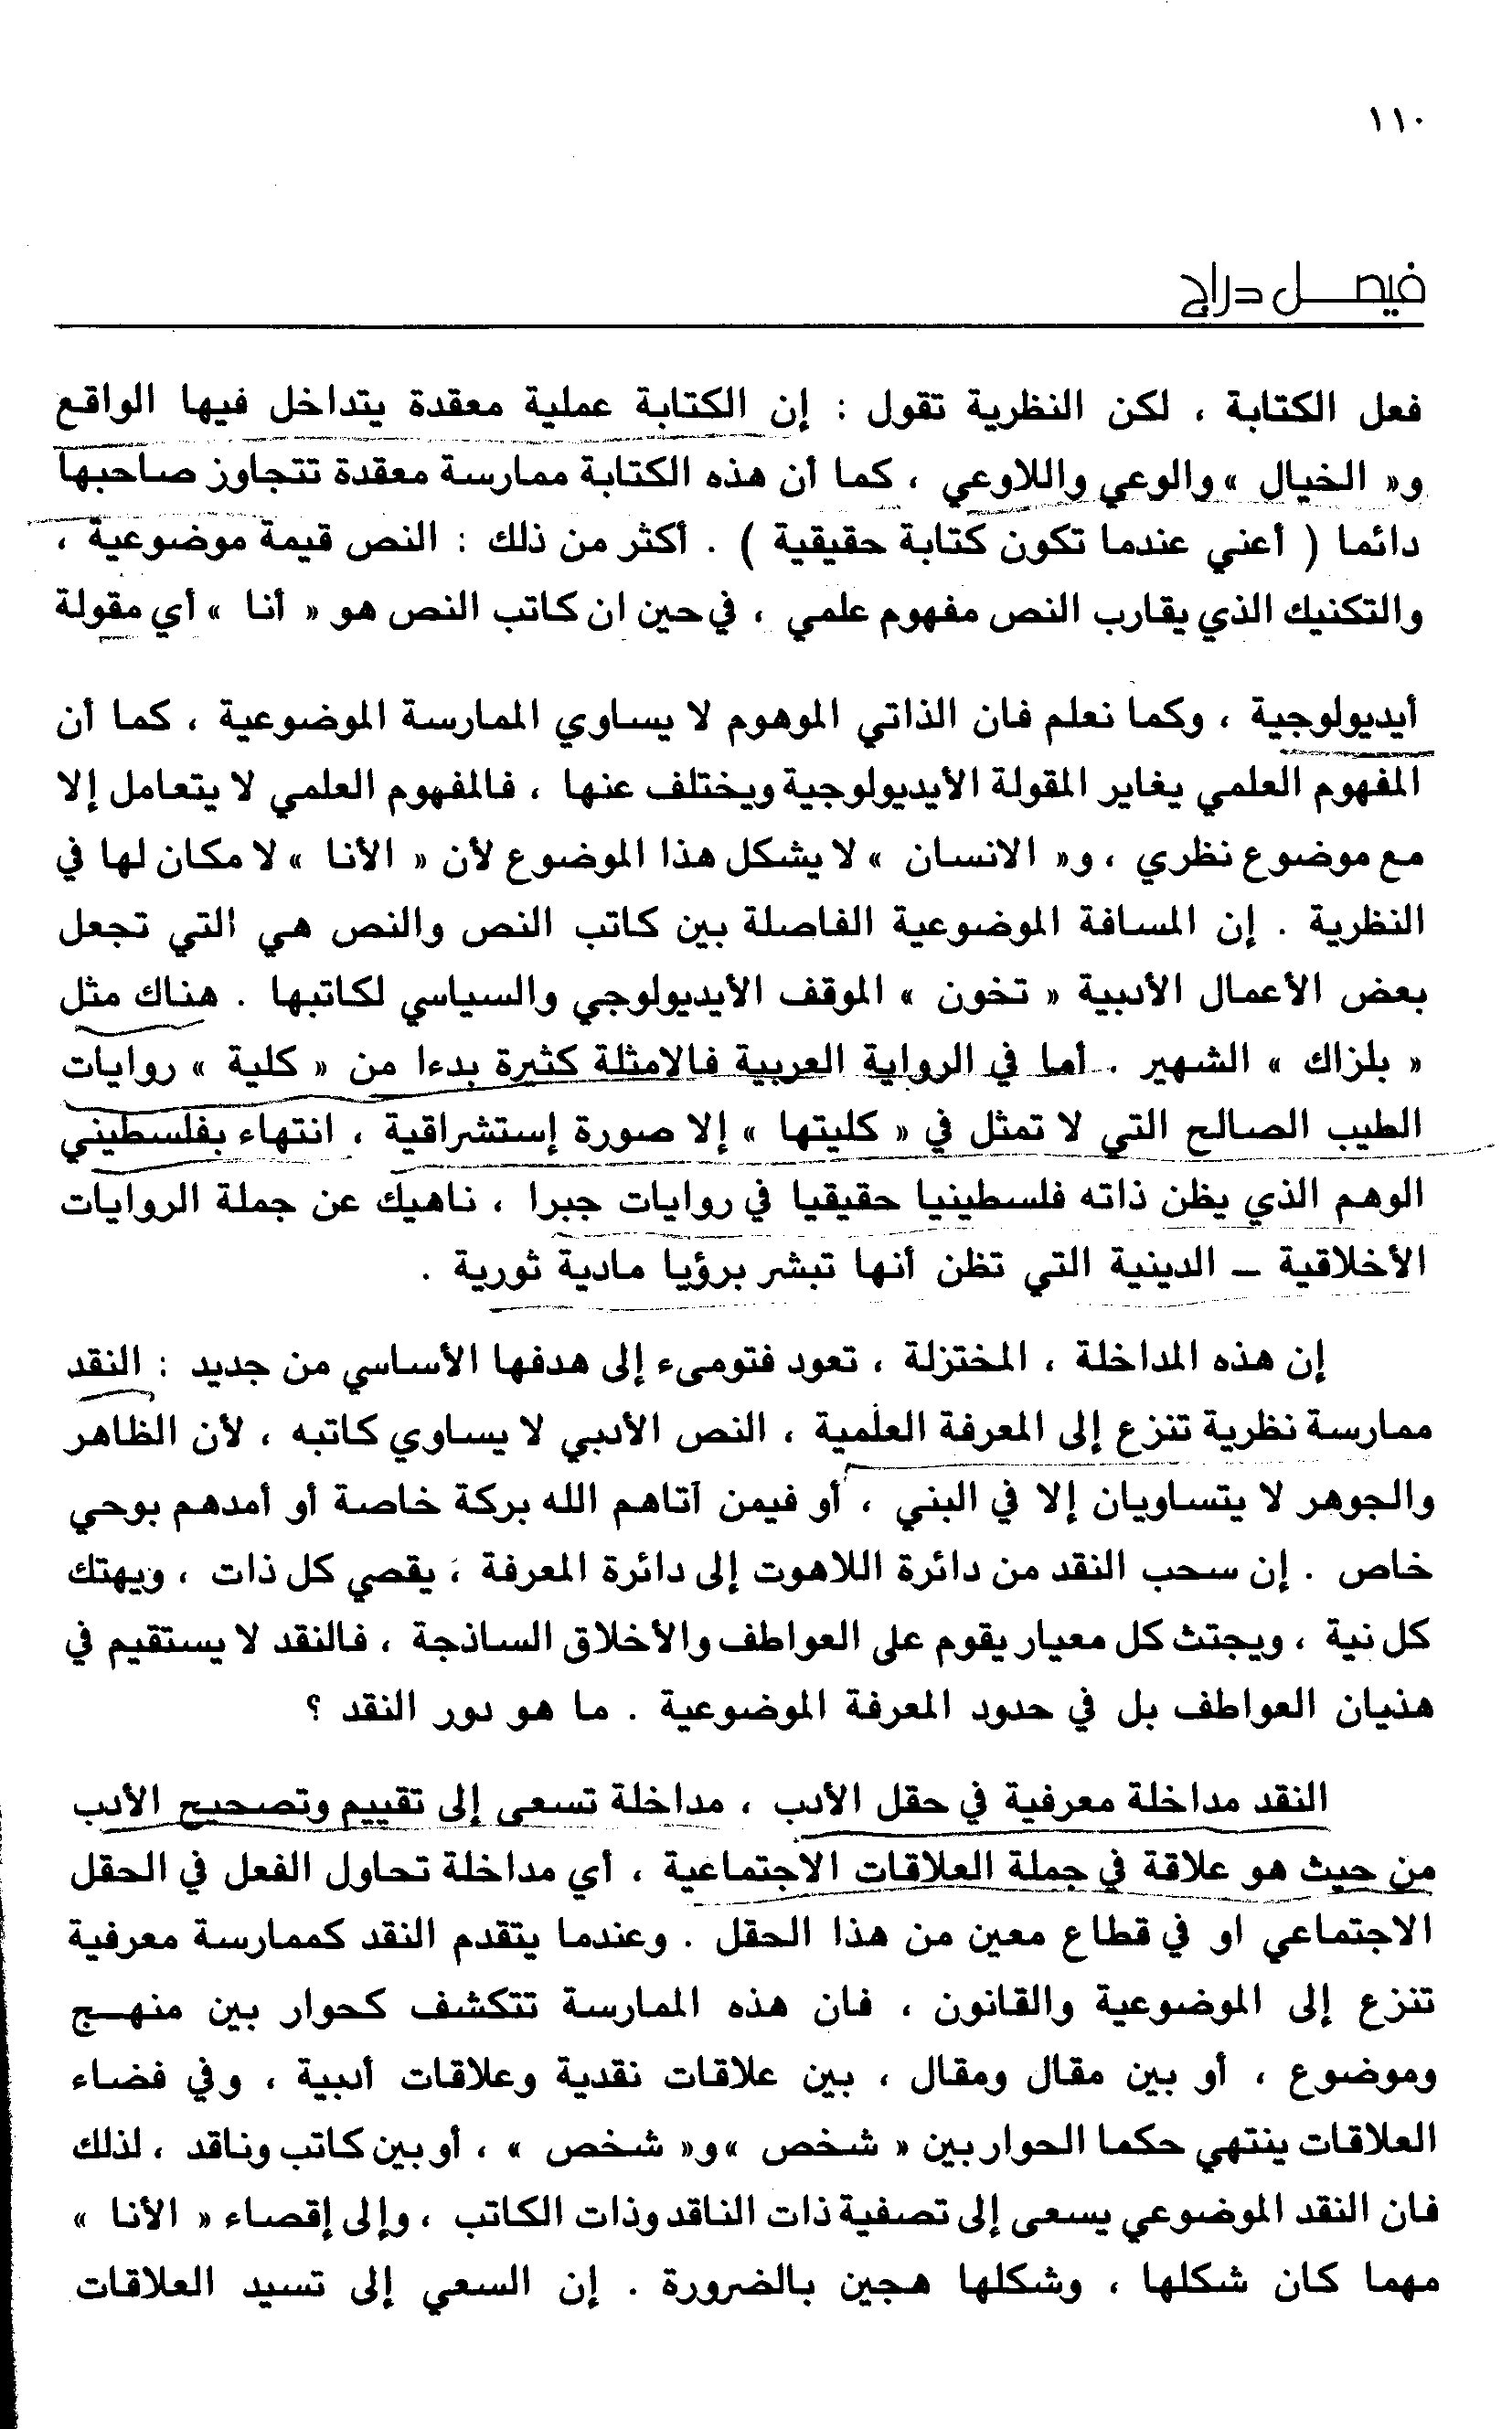 ١١٠
فيصل دراج
فعل الكتابة ، لكن النظرية تقول : إن الكتابة عملية معقدة يتداخل فيها الواقع
و« الخيال » والوعي واللاوعي ، كما أن هذه الكتابة ممارسة معقدة تتجاوز صاحبها
دائما ( أعني عندما تكون كتابة حقيقية ) . أكثر من ذلك : النص قيمة موضوعية ،
والتكنيك الذي يقارب النص مفهوم علمي ، في حين ان كاتب النص هو « أنا » أي مقولة
أيديولوجية ، وكما نعلم فان الذاتي الموهوم لا يساوي الممارسة الموضوعية ، كما أن
المفهوم العلمي يغاير المقولة الأيديولوجية ويختلف عنها ، فالمفهوم العلمي لا يتعامل إلا
مع موضوع نظري ، و« الانسان » لا يشكل هذا الموضوع لأن « الأنا » لا مكان لها في
النظرية . إن المسافة الموضوعية الفاصلة بين كاتب النص والنص هي التي تجعل
بعض الأعمال الأدبية « تخون » الموقف الأيديولوجي والسياسي لكاتبها . هناك مثل
« بلزاك » الشهير . أما في الرواية العربية فالامثلة كثيرة بدءا من « كلية » روايات
الطيب الصالح التي لا تمثل في « كليتها » إلا صورة إستشراقية ، انتهاء بفلسطيني
الوهم الذي يظن ذاته فلسطينيا حقيقيا في روايات جبرا ، ناهيك عن جملة الروايات
الأخلاقية - الدينية التي تظن أنها تبشر برؤيا مادية ثورية .
إن هذه المداخلة ، المختزلة ، تعود فتومىء إلى هدفها الأساسي من جديد : النقد
ممارسة نظرية تنزع إلى المعرفة العلمية ، النص الأدبي لا يساوي كاتبه ، لأن الظاهر
والجوهر لا يتساويان إلا في البني ، أو فيمن آتاهم الله بركة خاصة أو أمدهم بوحي
خاص . إن سحب النقد من دائرة اللاهوت إلى دائرة المعرفة ، يقصي كل ذات ، ويهتك
كل نية ، ويجتث كل معيار يقوم على العواطف والأخلاق الساذجة ، فالنقد لا يستقيم في
هذيان العواطف بل في حدود المعرفة الموضوعية . ما هو دور النقد ؟
النقد مداخلة معرفية في حقل الأدب ، مداخلة تسعى إلى تقييم وتصحيح الأدب
من حيث هو علاقة في جملة العلاقات الاجتماعية ، أي مداخلة تحاول الفعل في الحقل
الاجتماعي او في قطاع معين من هذا الحقل . وعندما يتقدم النقد كممارسة معرفية
تنزع إلى الموضوعية والقانون ، فان هذه الممارسة تتكشف كحوار بين منهج
وموضوع ، أو بين مقال ومقال ، بين علاقات نقدية وعلاقات أدبية ، وفي فضاء
العلاقات ينتهي حكما الحوار بين « شخص » و« شخص » ، أو بين كاتب وناقد ، لذلك
فان النقد الموضوعي يسعى إلى تصفية ذات الناقد وذات الكاتب ، وإلى إقصاء « الأنا »
مهما كان شكلها ، وشكلها هجين بالضرورة . إن السعي إلى تسيد العلاقات